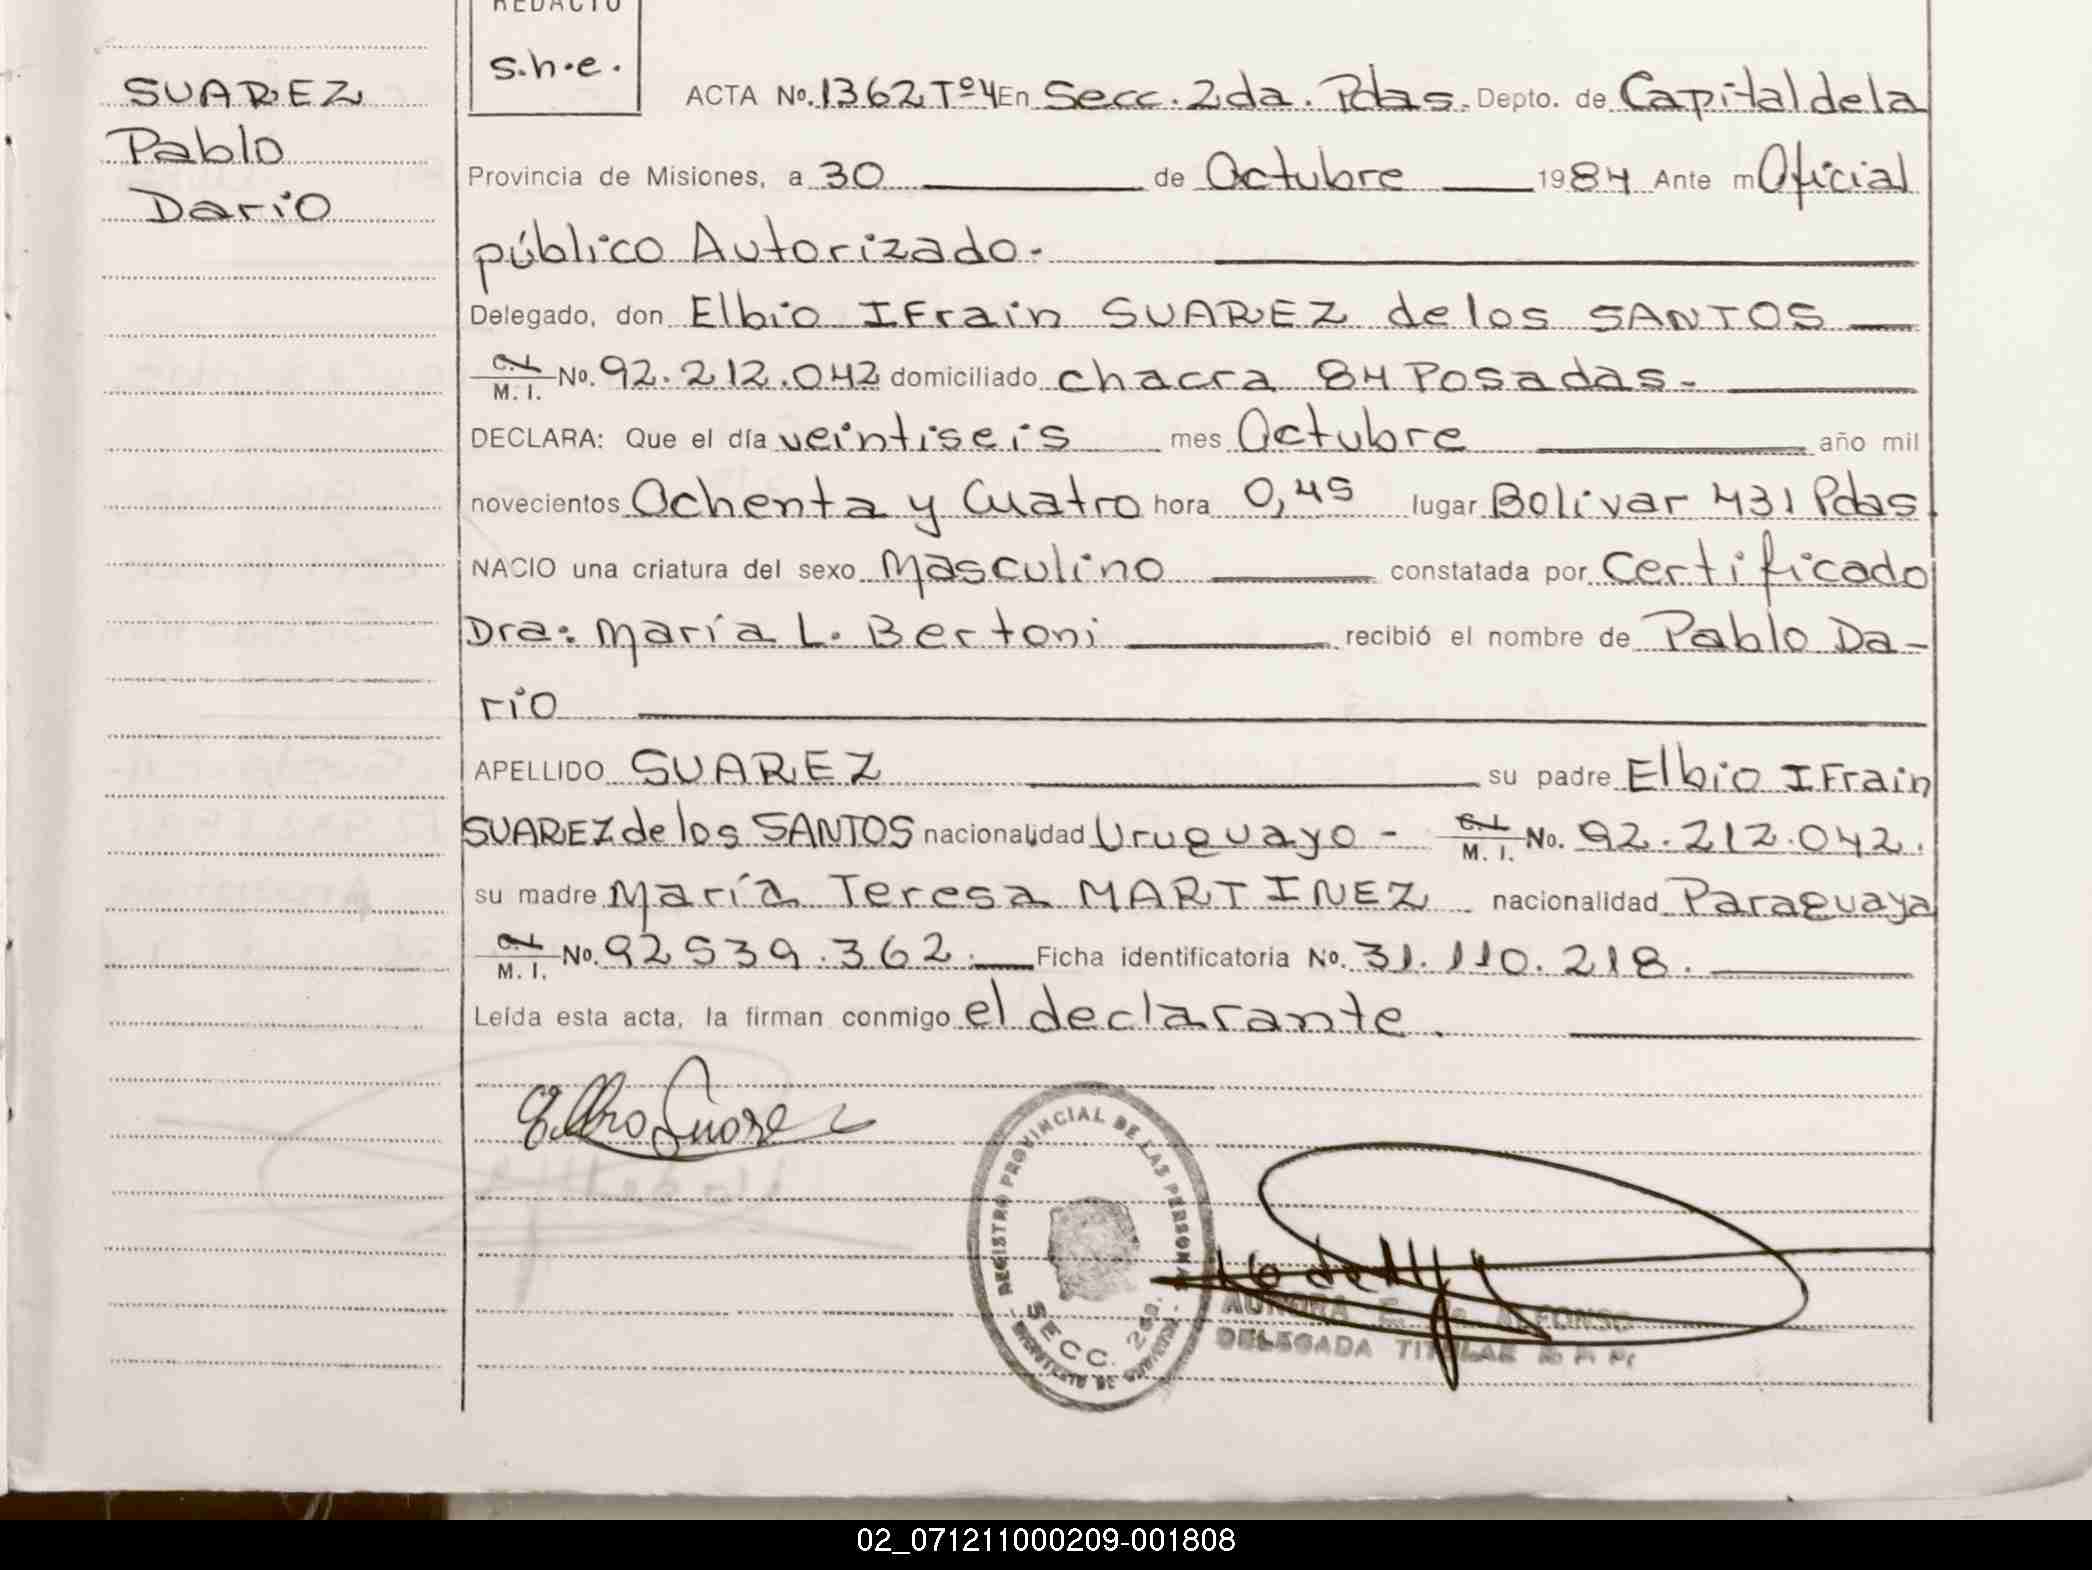 REDACTO
s.h.e.
SUAREZ
Pablo
Dario
ACTA No. 1362 Tº 4 En Secc. 2da. Pdas. Depto. de Capital de la
Provincia de Misiones, a 30 de Octubre 1984 Ante m Oficial
público Autorizado.
Delegado, don Elbio IFrain SUAREZ de los SANTOS
C.I. M.I. No. 92.212.042 domiciliado chacra 84 Posadas.
DECLARA: Que el día veintiseis mes Octubre año mil
novecientos Ochenta y Cuatro hora 0,45 lugar Bolivar 431 Pdas
NACIO una criatura del sexo Masculino constatada por Certificado
Dra: María L. Bertoni recibió el nombre de Pablo Da-
rio
APELLIDO SUAREZ su padre Elbio IFrain
SUAREZ de los SANTOS nacionalidad Uruguayo - C.I. M.I. No. 92.212.042.
su madre María Teresa MARTINEZ nacionalidad Paraguaya
C.I. M.I. No. 92 539.362. Ficha identificatoria No. 31.110.218.
Leída esta acta, la firman conmigo el declarante.
Elbio Suarez
REGISTRO PROVINCIAL DE LAS PERSONAS
SECC. 2da.
AURORA E. de ALFONSO
DELEGADA TITULAR R. P. P.
02_071211000209-001808